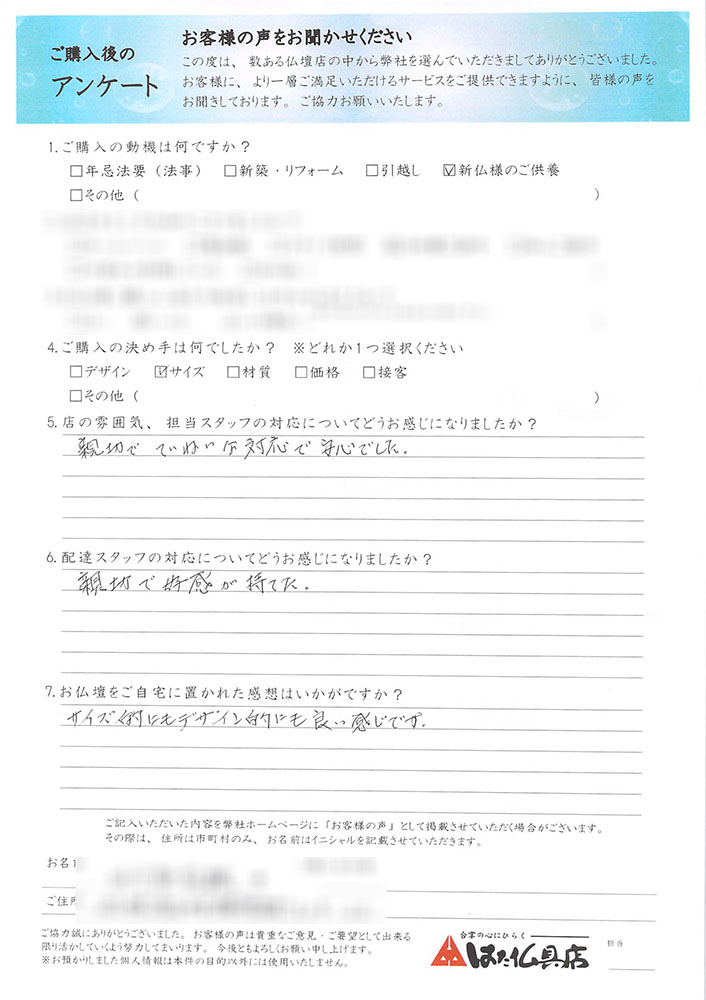 ご購入後の
アンケート
お客様の声をお聞かせください
この度は、数ある仏壇店の中から弊社を選んでいただきましてありがとうございました。
お客様に、より一層ご満足いただけるサービスをご提供できますように、皆様の声を
お聞きしております。ご協力お願いいたします。
1.ご購入の動機は何ですか？
□年忌法要（法事） □新築・リフォーム □引越し ☑新仏様のご供養
□その他（ ）
4.ご購入の決め手は何でしたか？ ※どれか1つ選択ください
□デザイン ☑サイズ □材質 □価格 □接客
□その他（ ）
5.店の雰囲気、担当スタッフの対応についてどうお感じになりましたか？
親切で ていねいな対応で安心でした.
6.配達スタッフの対応についてどうお感じになりましたか？
親切で好感が持てた.
7.お仏壇をご自宅に置かれた感想はいかがですか？
サイズ的にもデザイン的にも良い感じです.
ご記入いただいた内容を弊社ホームページに「お客様の声」として掲載させていただく場合がございます。
その際は、住所は市町村のみ、お名前はイニシャルを記載させていただきます。
お名前
ご住所
ご協力誠にありがとうございました。お客様の声は貴重なご意見・ご要望として出来る
限り活かしていくよう努力してまいります。今後ともよろしくお願い申し上げます。
※お預かりしました個人情報は本件の目的以外には使用いたしません。
合掌の心にひらく
はた仏具店
担当